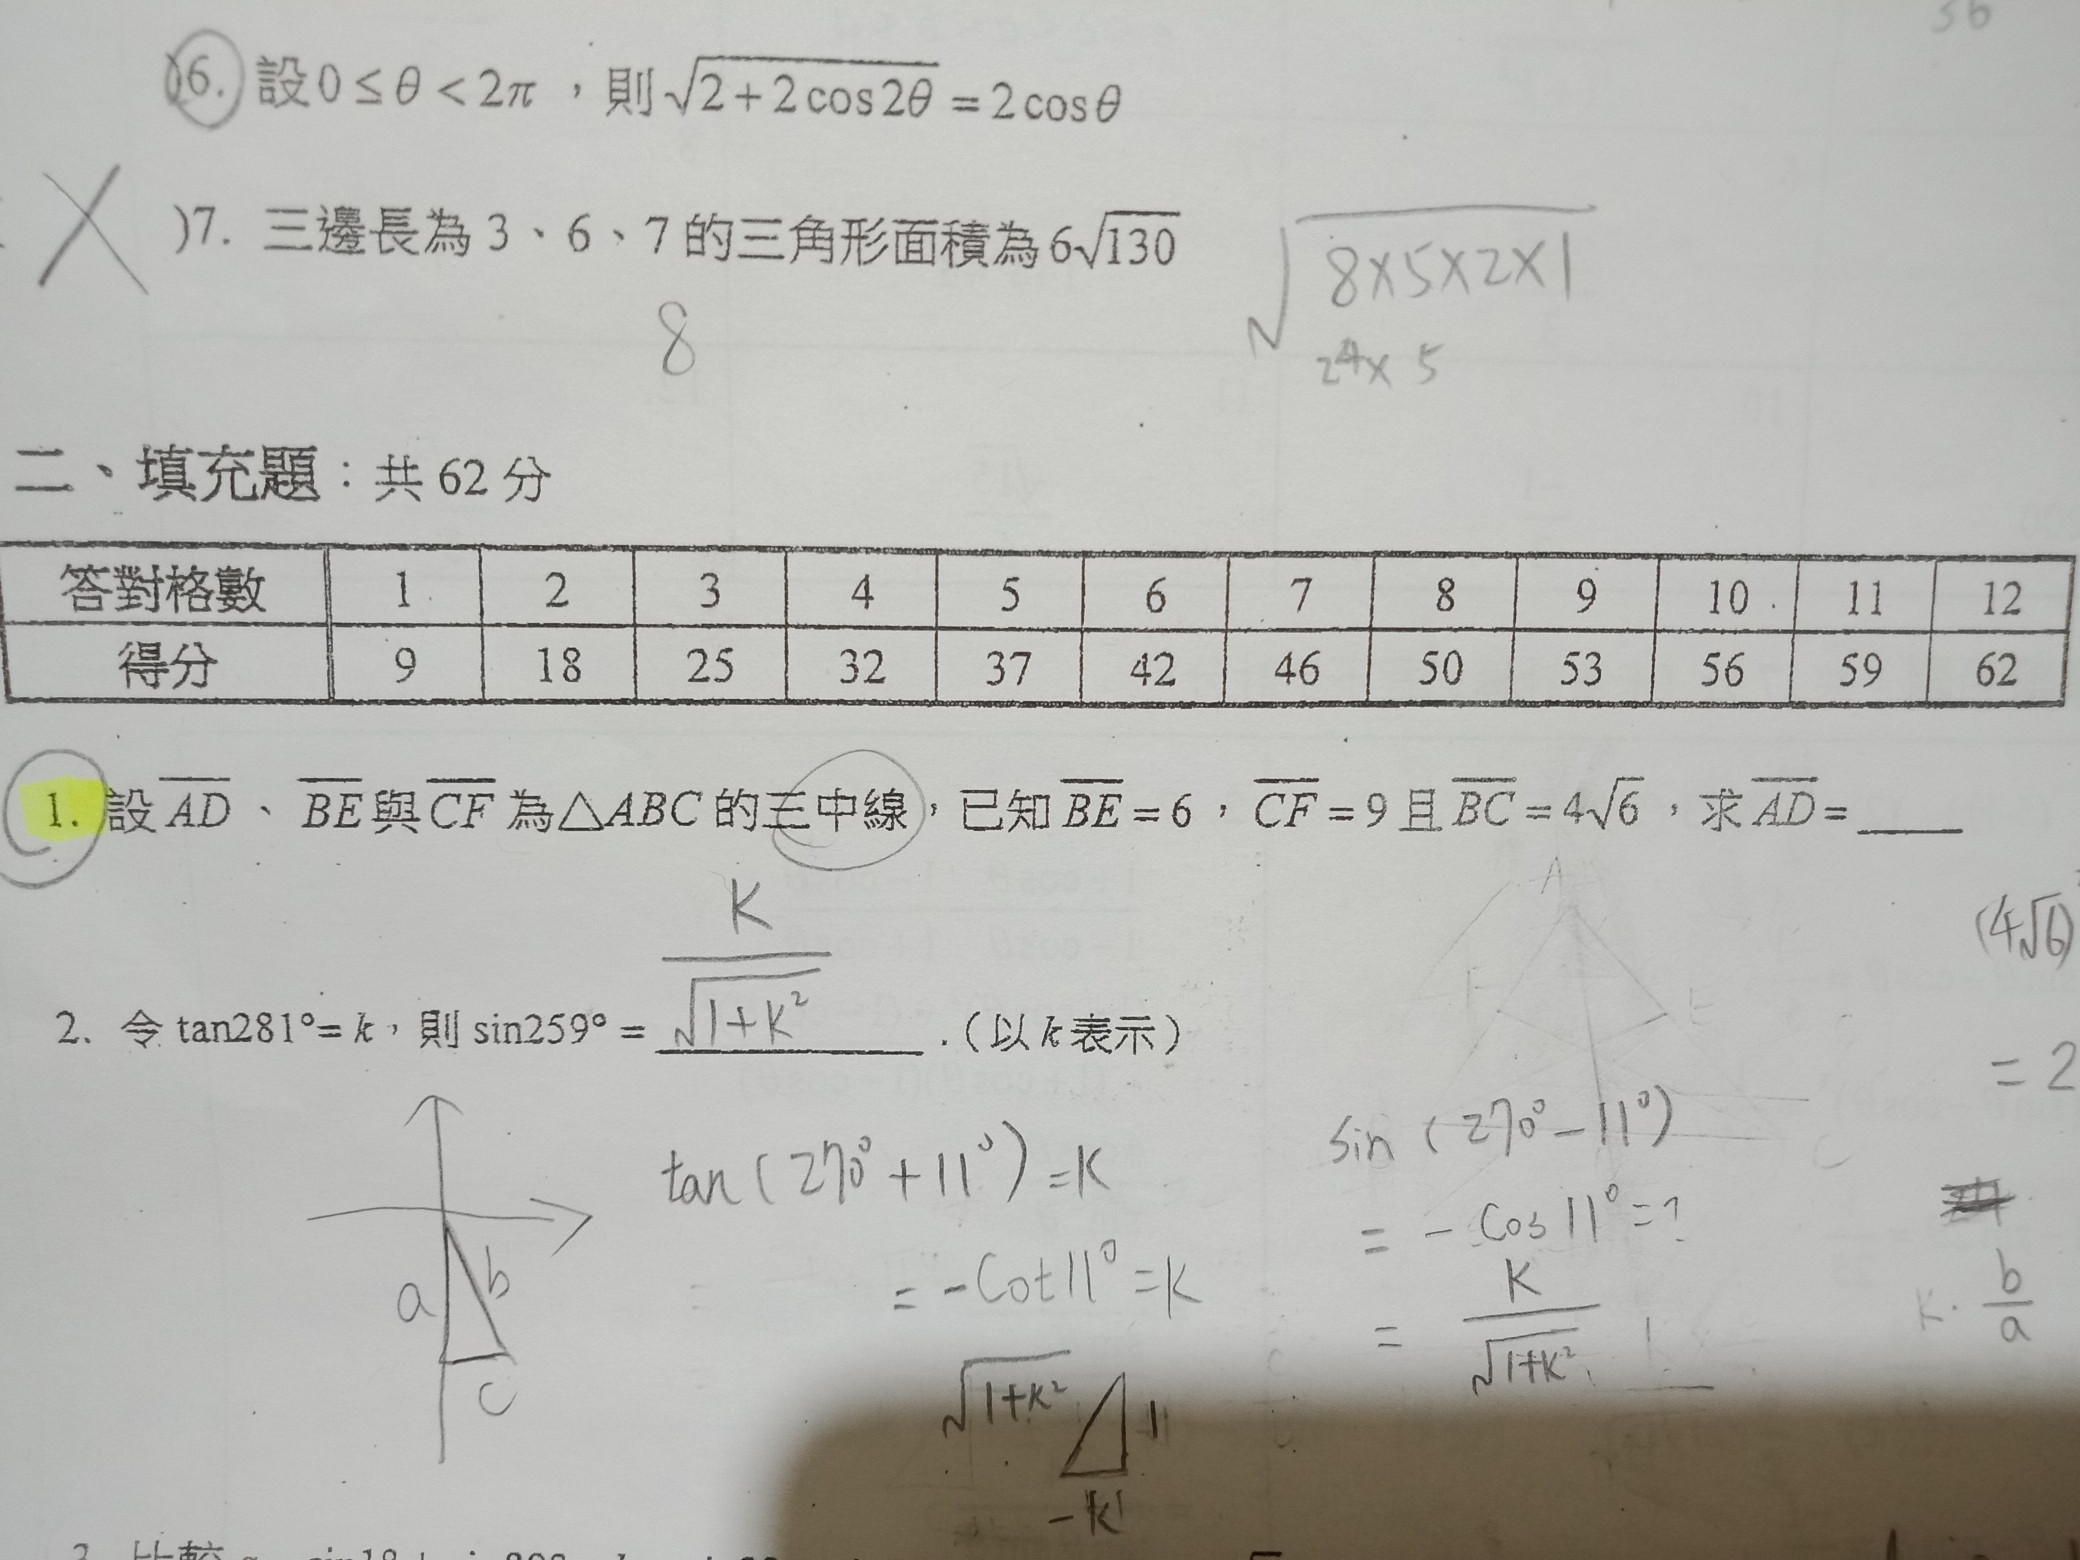 36
)6. 設 0 ≤ θ < 2π ,則 √2 + 2 cos 2θ = 2 cos θ
)7. 三邊長為 3、6、7 的三角形面積為 6√130
√8×5×2×1
8
24× 5
二、填充題:共 62 分
答對格數 1 2 3 4 5 6 7 8 9 10 11 12
得分 9 18 25 32 37 42 46 50 53 56 59 62
1. 設 AD、BE與CF 為△ABC 的三中線,已知 BE = 6,CF = 9 且 BC = 4√6,求 AD =
K
A
(4√6)
F E
2. 令 tan281°= k,則 sin259° = √1+K² .(以 k 表示)
= 2
sin (270°-11°)
tan (270°+11°) = K
C
= - Cos 11° = ?
= -Cot 11° = K
K
b
K. b/a
a
= √1+K²
c
√1+K² 1
-K